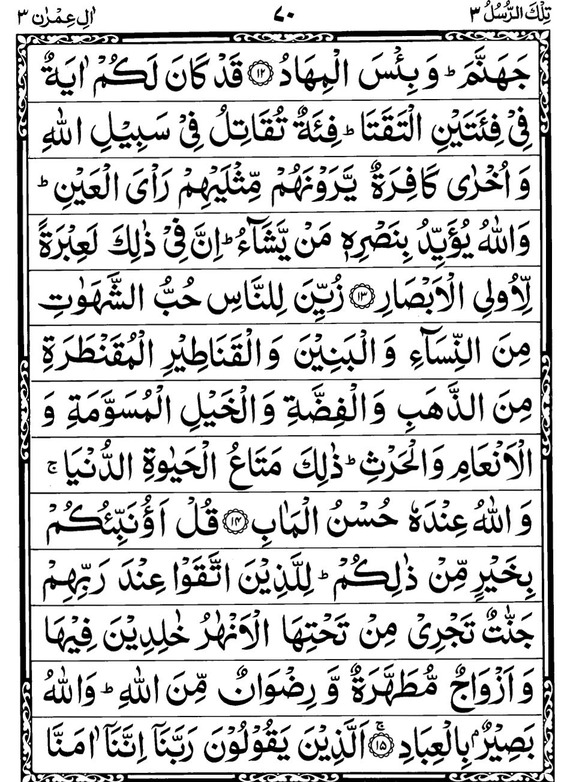 تِلْكَ الرُّسُلُ ٣ ٧٠ اٰلِ عِمْرٰن ٣
جَهَنَّمَ ؕ وَ بِئْسَ الْمِهَادُ ۝۱۲ قَدْ كَانَ لَكُمْ اٰیَةٌ
فِیْ فِئَتَیْنِ الْتَقَتَا ؕ فِئَةٌ تُقَاتِلُ فِیْ سَبِیْلِ اللّٰهِ
وَ اُخْرٰی كَافِرَةٌ یَّرَوْنَهُمْ مِّثْلَیْهِمْ رَاْیَ الْعَیْنِ ؕ
وَاللّٰهُ یُؤَیِّدُ بِنَصْرِهٖ مَنْ یَّشَآءُ ؕ اِنَّ فِیْ ذٰلِكَ لَعِبْرَةً
لِّاُولِی الْاَبْصَارِ ۝۱۳ زُیِّنَ لِلنَّاسِ حُبُّ الشَّهَوٰتِ
مِنَ النِّسَآءِ وَ الْبَنِیْنَ وَ الْقَنَاطِیْرِ الْمُقَنْطَرَةِ
مِنَ الذَّهَبِ وَ الْفِضَّةِ وَ الْخَیْلِ الْمُسَوَّمَةِ وَ
الْاَنْعَامِ وَ الْحَرْثِ ؕ ذٰلِكَ مَتَاعُ الْحَیٰوةِ الدُّنْیَا ۚ
وَ اللّٰهُ عِنْدَهٗ حُسْنُ الْمَاٰبِ ۝۱۴ قُلْ اَؤُنَبِّئُكُمْ
بِخَیْرٍ مِّنْ ذٰلِكُمْ ؕ لِلَّذِیْنَ اتَّقَوْا عِنْدَ رَبِّهِمْ
جَنّٰتٌ تَجْرِیْ مِنْ تَحْتِهَا الْاَنْهٰرُ خٰلِدِیْنَ فِیْهَا
وَ اَزْوَاجٌ مُّطَهَّرَةٌ وَّ رِضْوَانٌ مِّنَ اللّٰهِ ؕ وَاللّٰهُ
بَصِیْرٌۢ بِالْعِبَادِ ۝۱۵ۚ اَلَّذِیْنَ یَقُوْلُوْنَ رَبَّنَاۤ اِنَّنَاۤ اٰمَنَّا